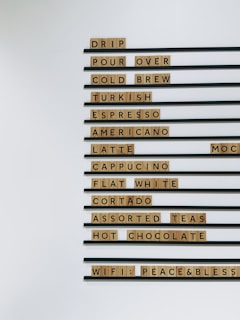 DRIP
POUR OVER
COLD BREW
TURKISH
ESPRESSO
AMERICANO
LATTE MOC
CAPPUCINO
FLAT WHITE
CORTADO
ASSORTED TEAS
HOT CHOCOLATE
WIFI: PEACE&BLESS